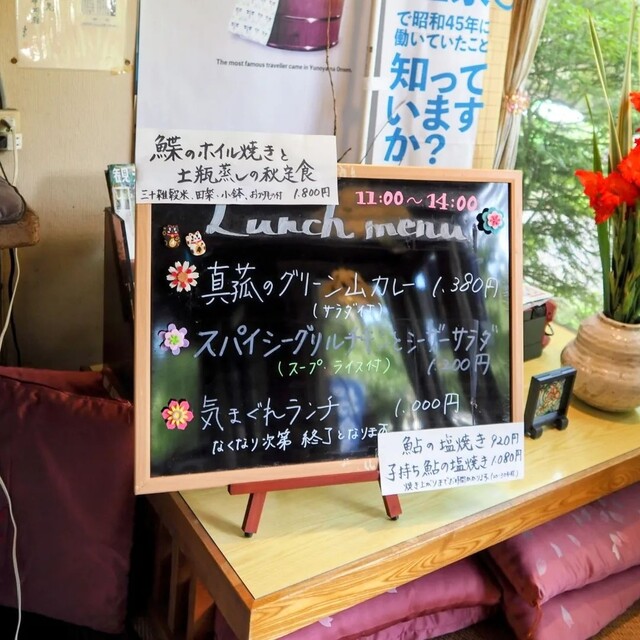 The most famous traveller came in Yunoyama Onsen.
で昭和45年に
働いていたこと
知って
います
か?
鰈のホイル焼きと
土瓶蒸しの秋定食
三十雑穀米、田楽、小鉢、お刺身付 1.800円
11:00～14:00
Lunch menu
真菰のグリーン山カレー 1.380円
(サラダ付)
スパイシーグリルチキンとシーザーサラダ
(スープ・ライス付) 1.200円
気まぐれランチ 1.000円
なくなり次第 終了となります
鮎の塩焼き 920円
子持ち鮎の塩焼き 1.080円